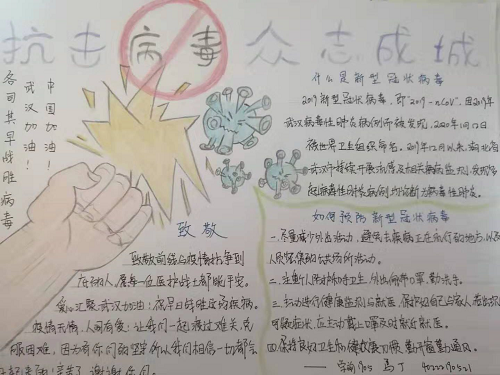 抗击病毒 众志成城
中国加油！
武汉加油！
各司其早战胜病毒
什么是新型冠状病毒
2019新型冠状病毒，即"2019-nCoV"，因2019年
武汉病毒性肺炎病例而被发现，2020年1月12日
被世界卫生组织命名。2019年12月以来，湖北省
武汉市持续开展流感及相关疾病监测，发现多
起病毒性肺炎病例，均诊断为病毒性肺炎。
致敬
致敬前线与疫情抗争到
底的人，愿每一位医护战士都能平安。
爱心汇聚武汉加油：愿早日战胜这场疾病。
疫情无情，人间有爱：让我们一起渡过难关，克
服困难，因为有你们的坚守所以我们相信一切都会
谢谢你们
如何预防新型冠状病毒
一、尽量减少外出活动，避免去疾病正在流行的地方，以及
人员密集的公共场所活动。
二、注重个人防护和手卫生，外出佩戴口罩，勤洗手。
三、主动进行健康监测与就医，保护好自己与家人若出现
可疑症状，应主动戴上口罩及时就近就医。
四、保持良好卫生和健康习惯，勤开窗勤通风。